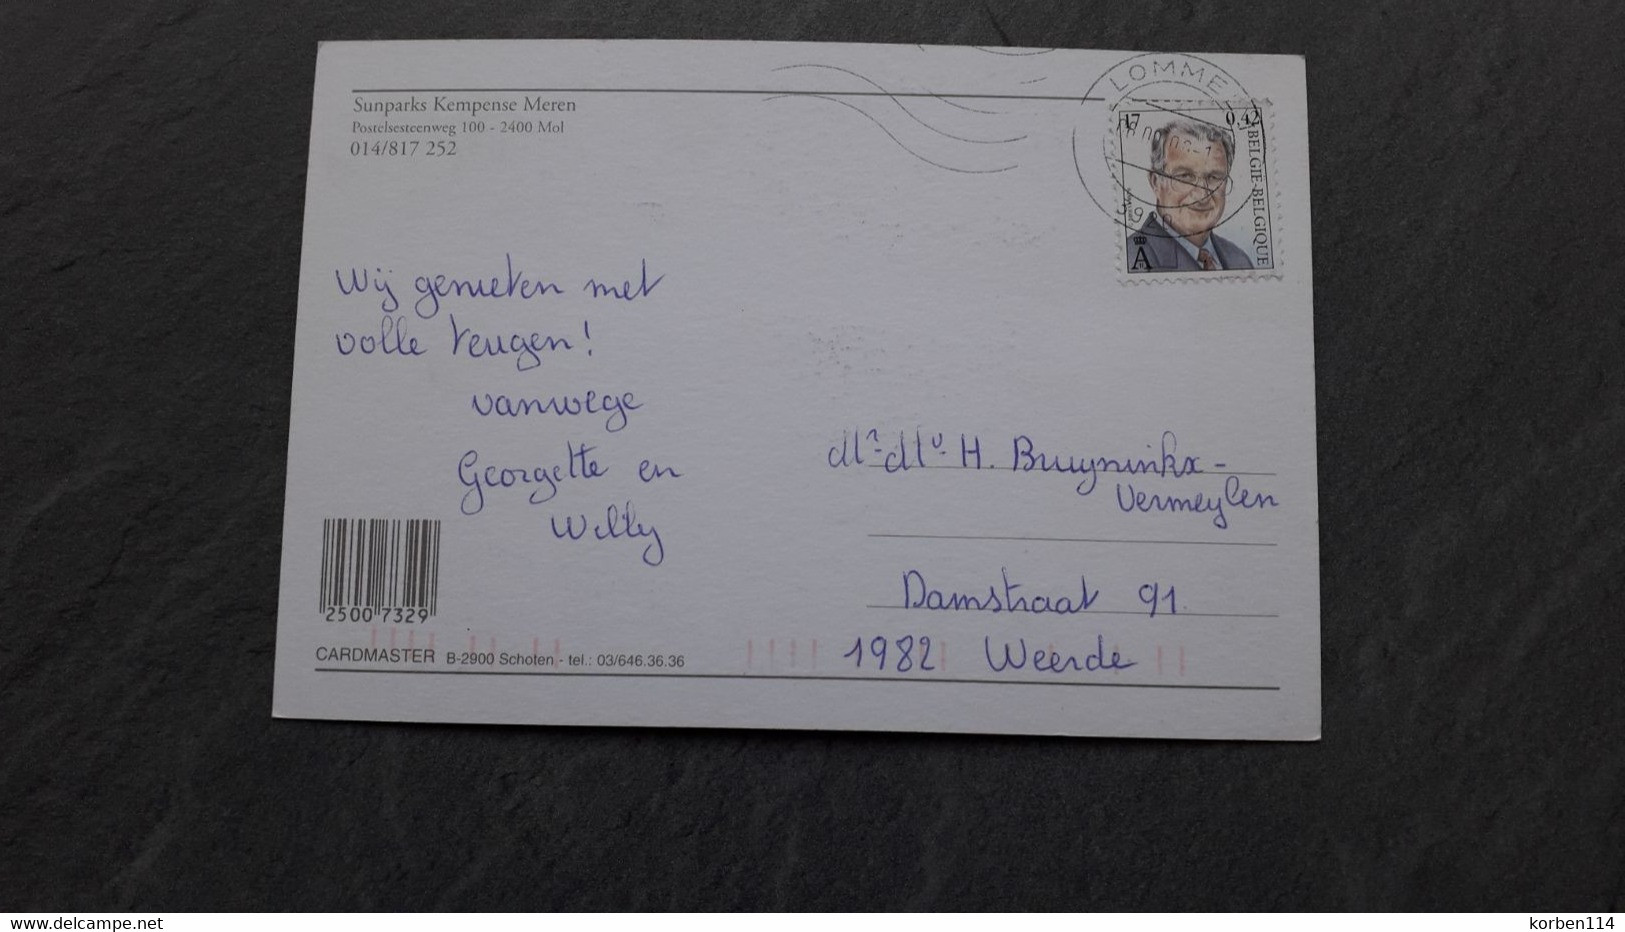 Sunparks Kempense Meren
Postelsesteenweg 100 - 2400 Mol
014/817 252
LOMMEL
17 0,42
BELGIE-BELGIQUE
A
Wij genieten met
volle teugen!
vanwege
Georgette en
Willy
Mr. Mv. H. Bruyninkx -
Vermeylen
Damstraat 91
1982 Weerde
2500 7329
CARDMASTER B-2900 Schoten - tel.: 03/646.36.36
www.delcampe.net
korben114